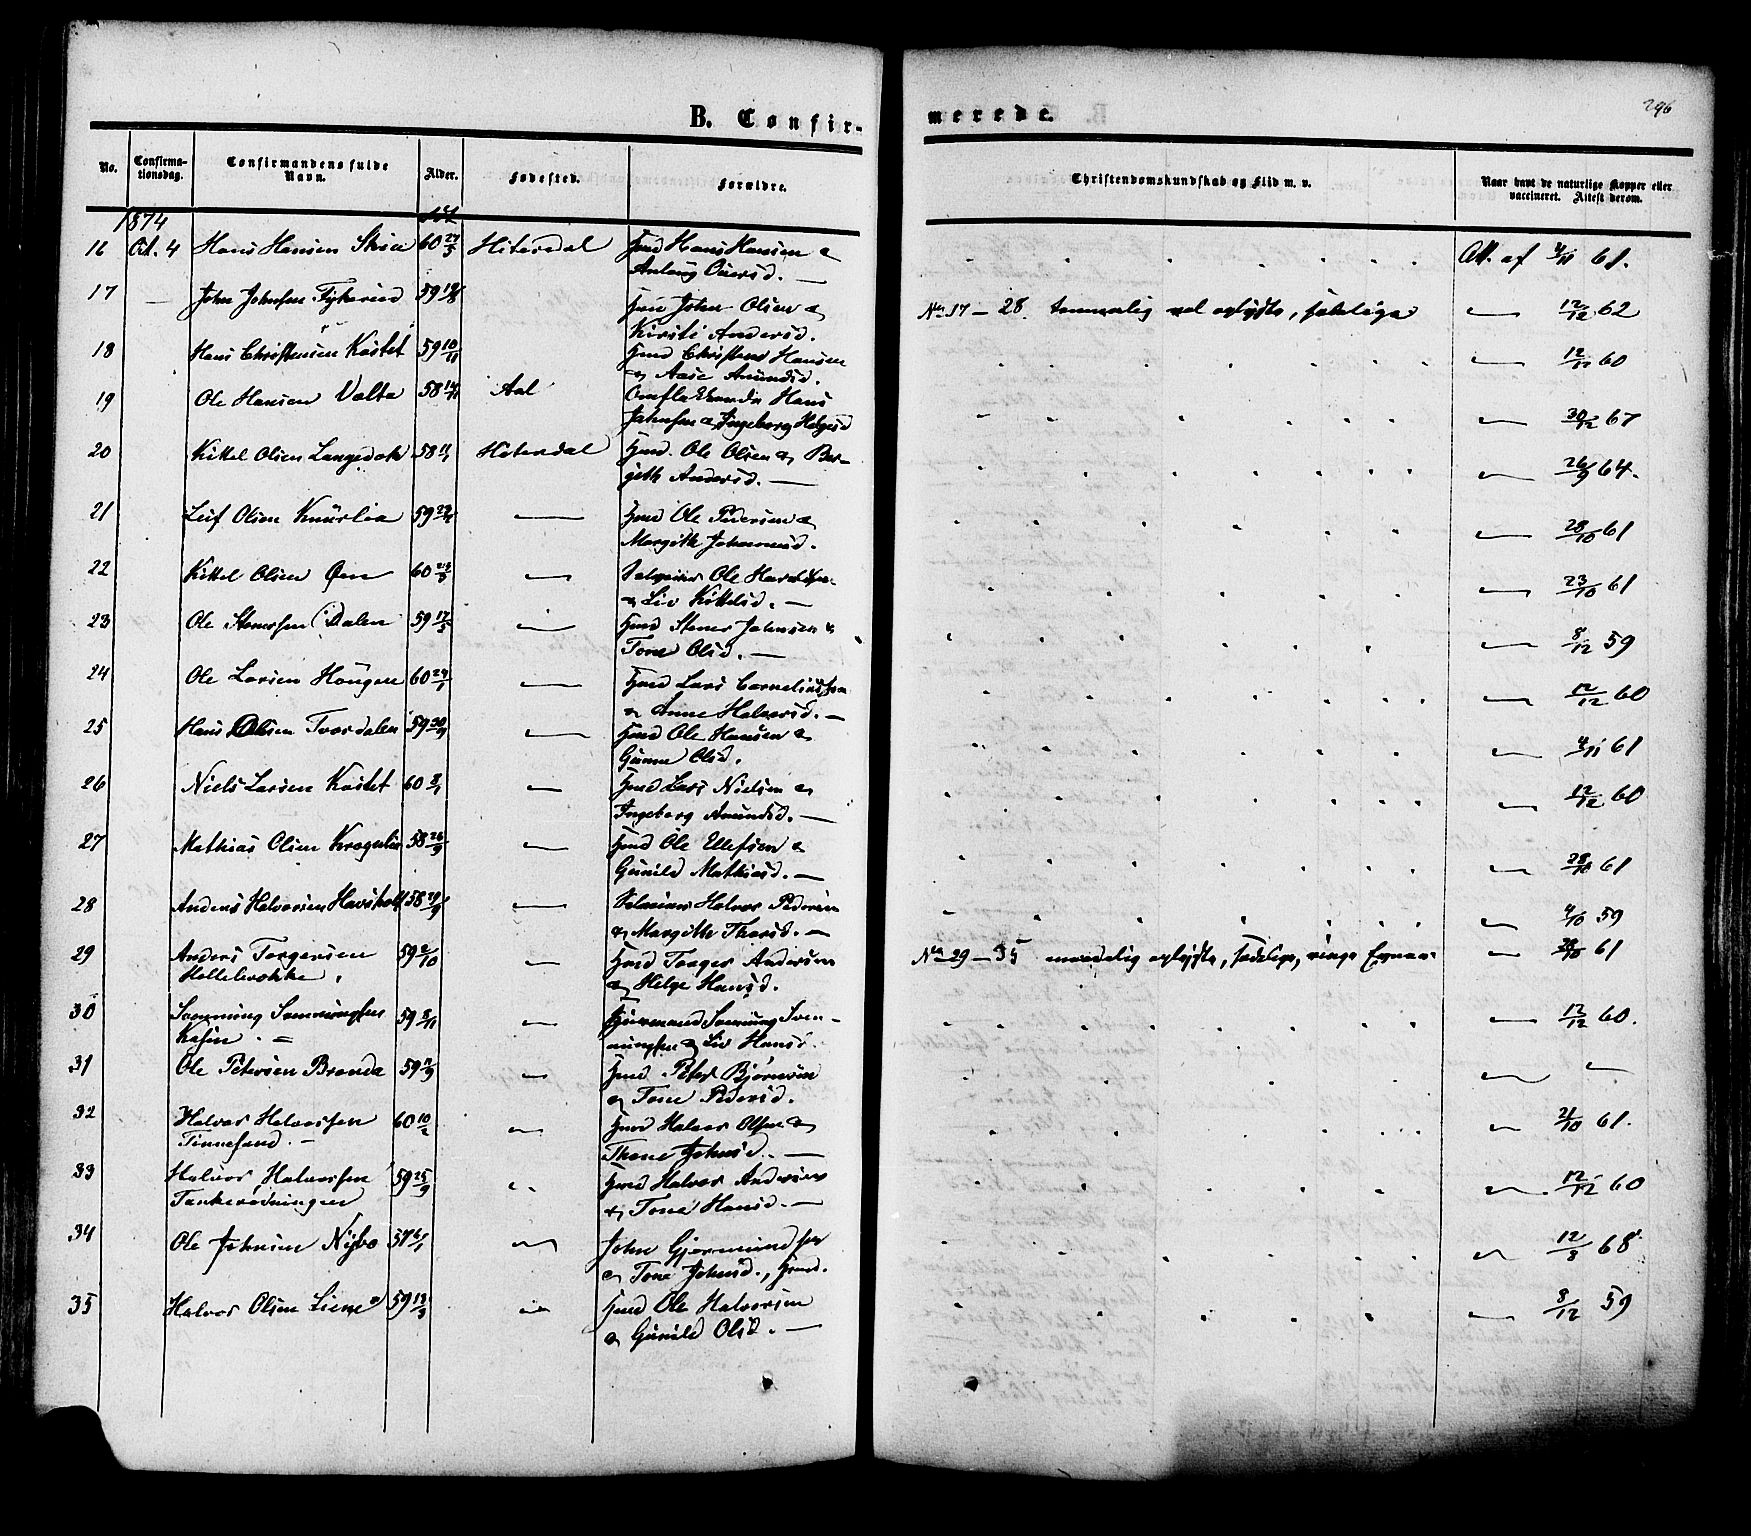 B. Confir-
merede.
296
No.
Confirma-
tionsdag.
Confirmandens fulde
Navn.
Alder.
Fødested.
Forældre.
Christendomskundskab og Flid m. v.
Naar havt de naturlige Kopper eller
vaccineret. Attest derom.
1874
16 Oct. 4 Hans Hansen 60 27/5 Hiterdal Gmd Hans Hansen &
— Att. af 4/11 61.
17 — John Johnsen 59 John Olsen &
Kirsti Andersd.
No 17 - 28. temmelig vel oplyste, sædelige — 12/12 62
18 Hans Christensen Kastet 59 10/11 Gmd Christen Hansen
& Aase Amundsd. — 12/12 60
19 Ole Hansen Valta 58 Aal Hans
Johnsen & Ingeborg Helgesd — 30/12 67
20 Kittel Olsen Langedok 58 Hiterdal Gmd. Ole Olsen & Ber-
gith Andersd. — 26/9 64.
21 Leif Olsen Knurlia 59 — Gmd Ole Pedersen &
Margith Johannesd. — 28/10 61
22 Kittel Olsen Øen 60 — Selveier Ole
& Liv Kittelsd. — 23/10 61
23 Ole Stenersen Dalen 59 17/5 — Gmd Stener Johnsen &
Tone Olsd. — 8/12 59
24 Ole Larsen Haugen 60 29/1 — Gmd Lars Corneliussen
& Anne Halvorsd. — 12/12 60
25 Hans Olsen Tvordalen 59 30/9 — Gmd Ole Hansen &
Gunne Olsd. 4/11 61
26 Niels Larsen Kastet 60 8/1 — Gmd Lars Nielsen &
Ingeborg Amundsd. — 12/12 60
27 Mathias Olsen 58 26/9 — Gmd Ole Ellefsen &
Gunild Mathiasd. — 28/10 61
28 Anders Halvorsen Havsholt 58 — Selveier Halvor Pedersen
& Margith Thorsd. — 4/10 59
29 Anders Torgersen 59 2/10 — Gmd Torger Andersen
& Helge Hansd.
No 29 - 35 maadelig oplyste, sædelige, ringe Evner — 28/10 61
30 Svenning Svenningsen
Kasin. 59 8/11 — Gjermund Svenning Sven-
ningsen & Liv Hansd. — 12/12 60.
31 Ole Petersen Brenda 59 — Gmd Peter Bjørnsen
& Tone Pedersd. — —
32 Halvor Halvorsen
Tinnesand. 60 10/2 — Gmd Halvor Olsen &
Thone Johnsd. — 21/10 61.
33 Halvor Halvorsen
59 25/9 — Gmd Halvor Andersen
& Tone Hansd. — 12/12 60
34 Ole Johnsen Nisbo 57 6/1 — John Gjermundsen
& Tone Johnsd., Gmd. — 12/3 68
35 Halvor Olsen Liene 59 13/3 — Gmd Ole Halvorsen
& Gunild Olsd. — 8/12 59